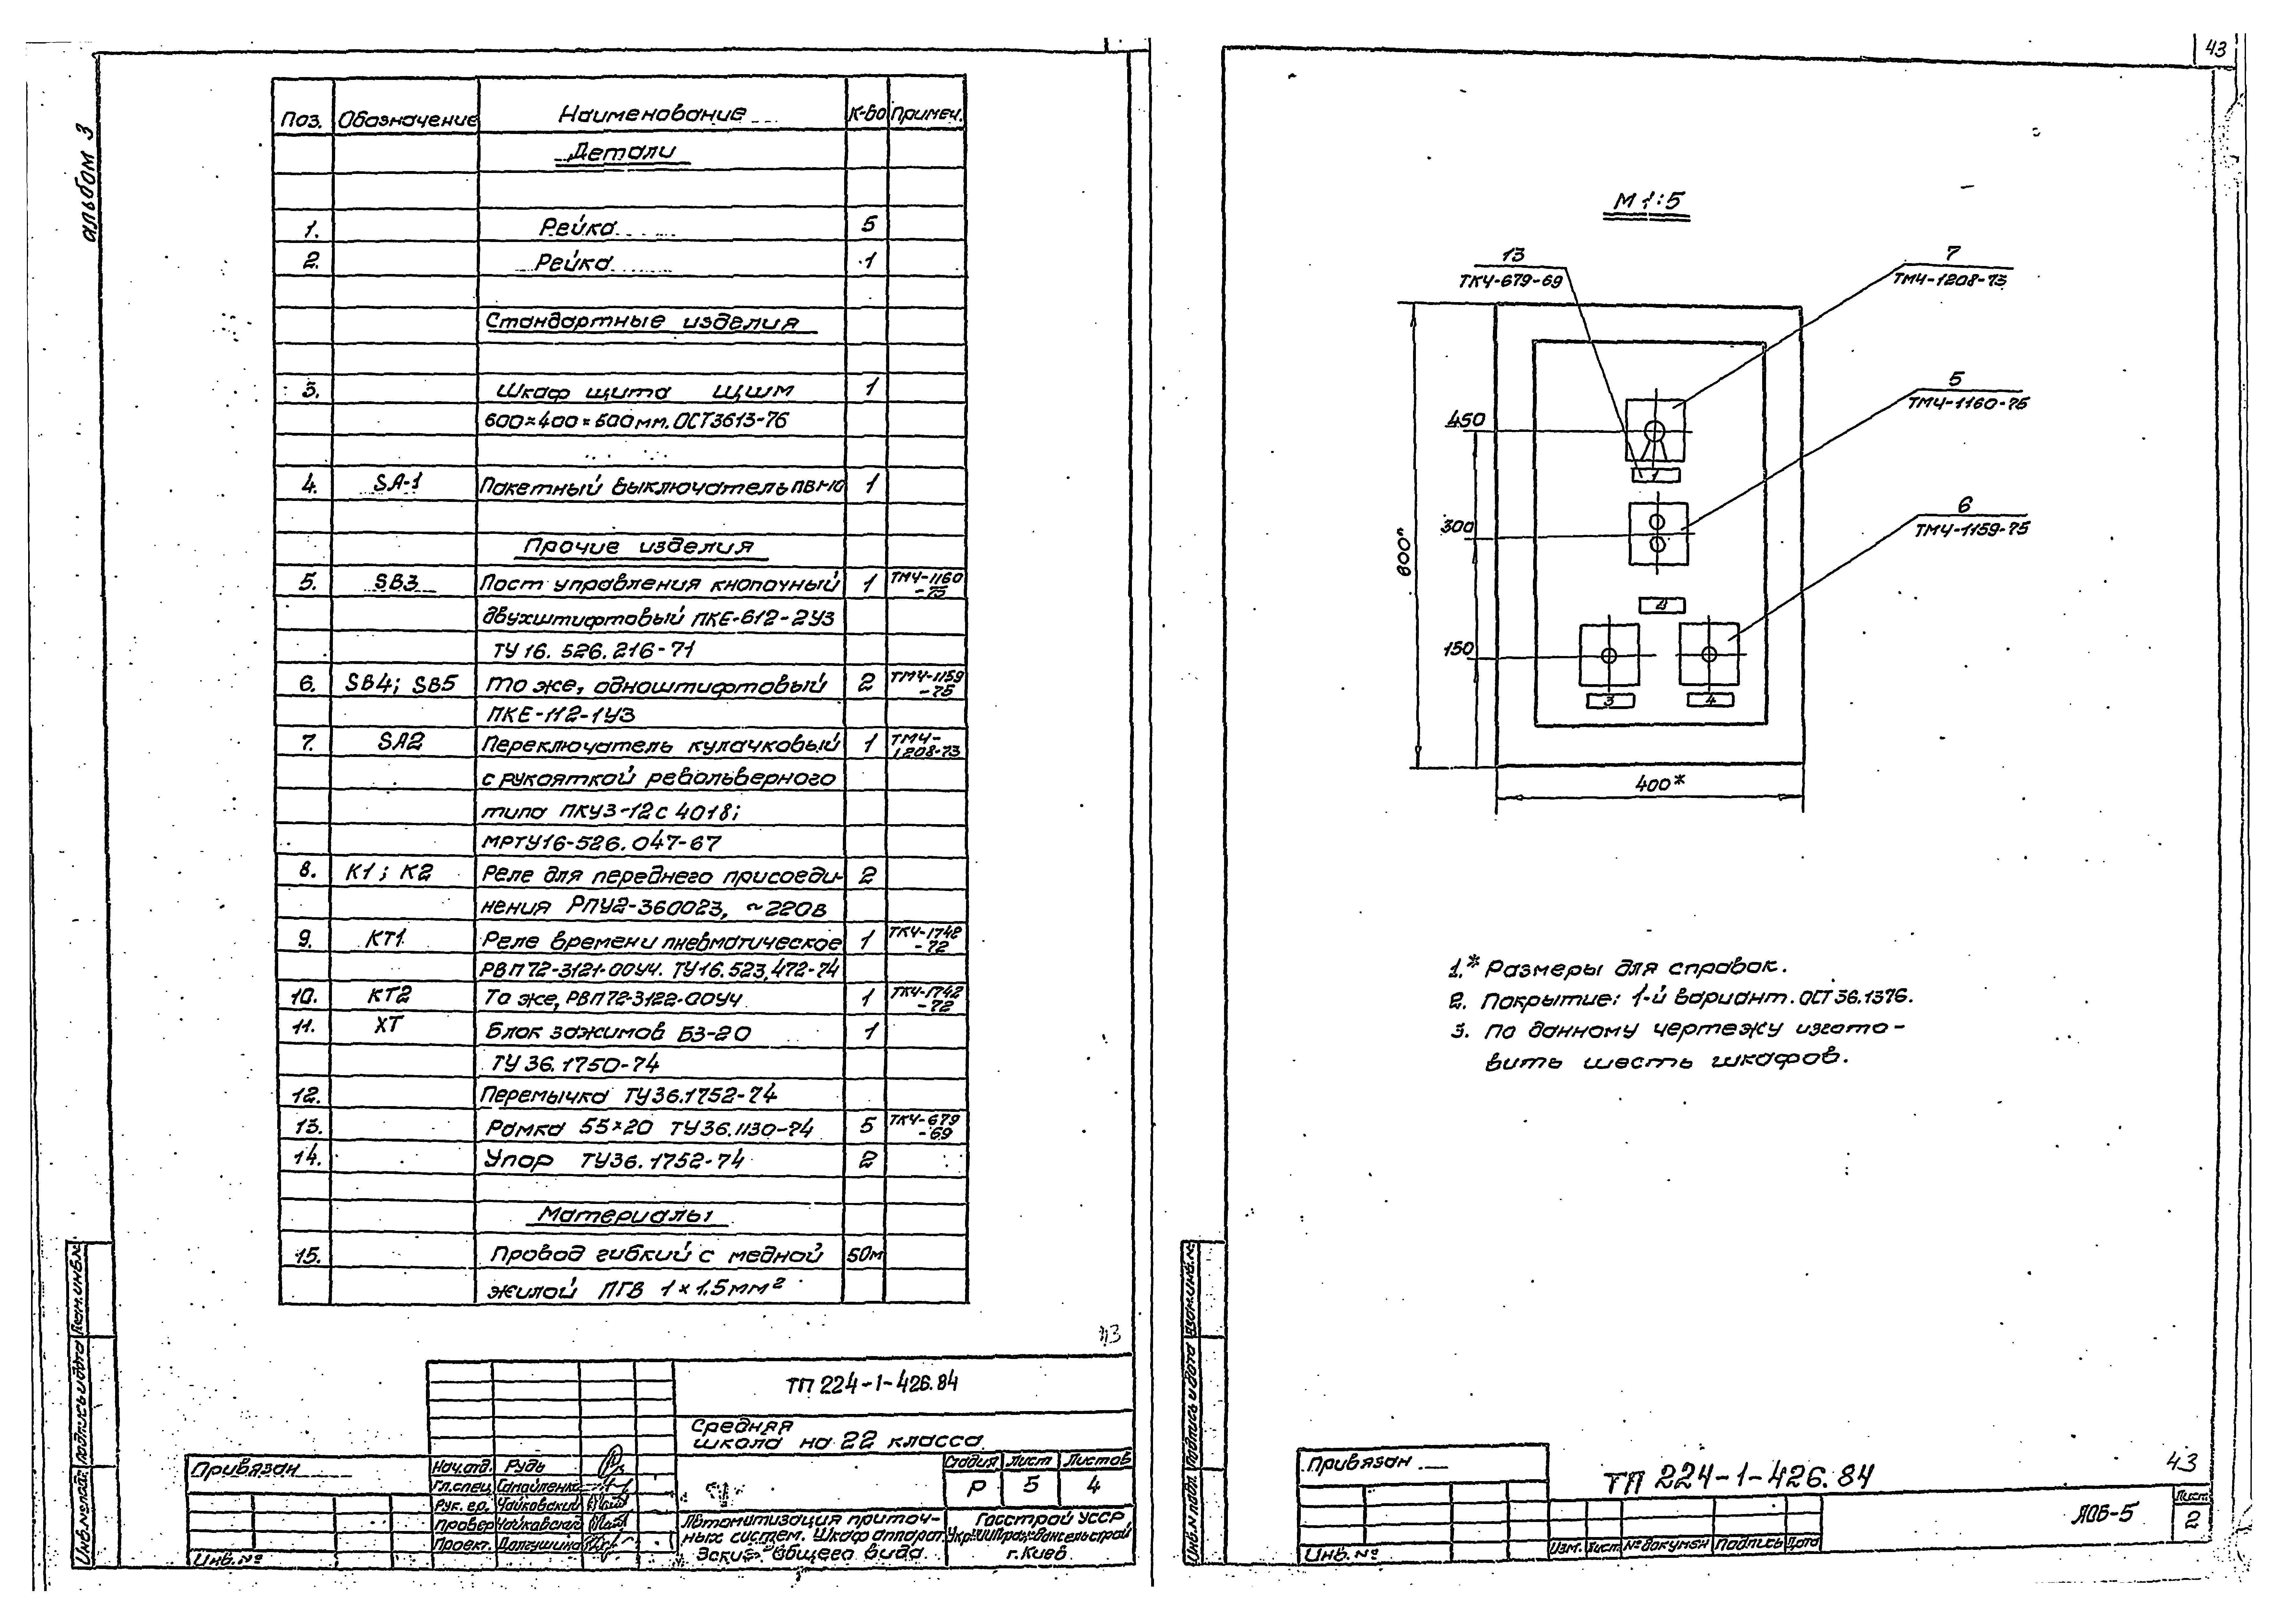 альбом 3
Поз. Обозначение Наименование К-во Примеч.
Детали
1. Рейка 5
2. Рейка 1
Стандартные изделия
3. Шкаф щита ЩШМ 1
600×400×500мм. ОСТ3613-76
4. SA-1 Пакетный выключатель ПВМ-10 1
Прочие изделия
5. SB3 Пост управления кнопочный 1 ТМЧ-1160-75
двухштифтовый ПКЕ-612-2У3
ТУ 16. 526. 216-71
6. SB4; SB5 То же, одноштифтовый 2 ТМЧ-1159-75
ПКЕ-112-1У3
7. SA2 Переключатель кулачковый 1 ТМЧ-1208-73
с рукояткой револьверного
типа ПКУ3-12с 4018;
МРТУ16-526.047-67
8. К1; К2 Реле для переднего присоеди- 2
нения РПУ2-360023, ~220в
9. КТ1 Реле времени пневматическое 1 ТКЧ-1748-72
РВП72-3121-00У4. ТУ16.523.472-74
10. КТ2 То же, РВП72-3122-00У4 1 ТКЧ-1742-72
11. ХТ Блок зажимов БЗ-20 1
ТУ 36.1750-74
12. Перемычка ТУ36.1752-74
13. Рамка 55×20 ТУ36.1130-74 5 ТКЧ-679-69
14. Упор ТУ36.1752-74 2
Материалы
15. Провод гибкий с медной 50м
жилой ПГВ 1×1.5мм²
43
ТП 224-1-426.84
Средняя
школа на 22 класса
Привязан
Инв.№
Нач.отд. Рудь
Гл.спец.
Рук. гр. Чайковский
Провер. Чайковский
Проект. Долгушина
Стадия Лист Листов
Р 5 4
Автоматизация приточ-
ных систем. Шкаф аппарат.
Эскиз общего вида
Госстрой УССР
г.Киев
Инв.№подл. Подпись и дата Взам.инв.№
43
М 1:5
13
ТКЧ-679-69
7
ТМЧ-1208-73
5
ТМЧ-1160-75
6
ТМЧ-1159-75
450
300
150
600*
400*
1
2
3
4
1.* Размеры для справок.
2. Покрытие: 1-й вариант. ОСТ 36.1376.
3. По данному чертежу изгото-
вить шесть шкафов.
Инв.№подл. Подпись и дата Взам.инв.№
Привязан
Инв.№
ТП 224-1-426.84
43
Изм. Лист №докумен Подпись Дата
АОВ-5
Лист
2